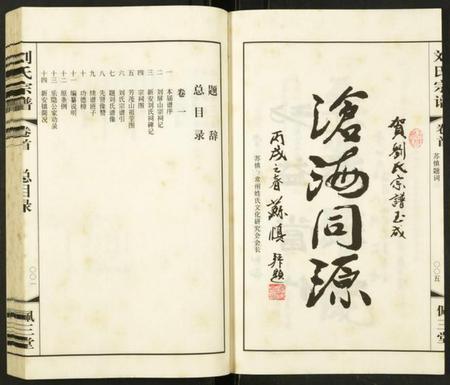 刘氏宗谱
卷首
苏慎题词
〇〇五
佩三堂
贺刘氏宗谱玉成
滄海同源
丙戌之春 蘇慎 拜題
苏慎：常州姓氏文化研究会会长
题辞
总目录
卷一
一 本届谱序
二 刘屏山宗祠记
三 新安刘氏祠碑记
四 宗祠图
五 芳茂山祖茔图
六 刘氏宗谱引
七 题刘氏谱像
八 先贤像赞
九 续谱班子
十 功德榜
十一 编纂说明
十二 原条例
十三 乐隐公家劝录
十四 新安镇简况
刘氏宗谱
卷首
总目录
〇〇一
佩三堂